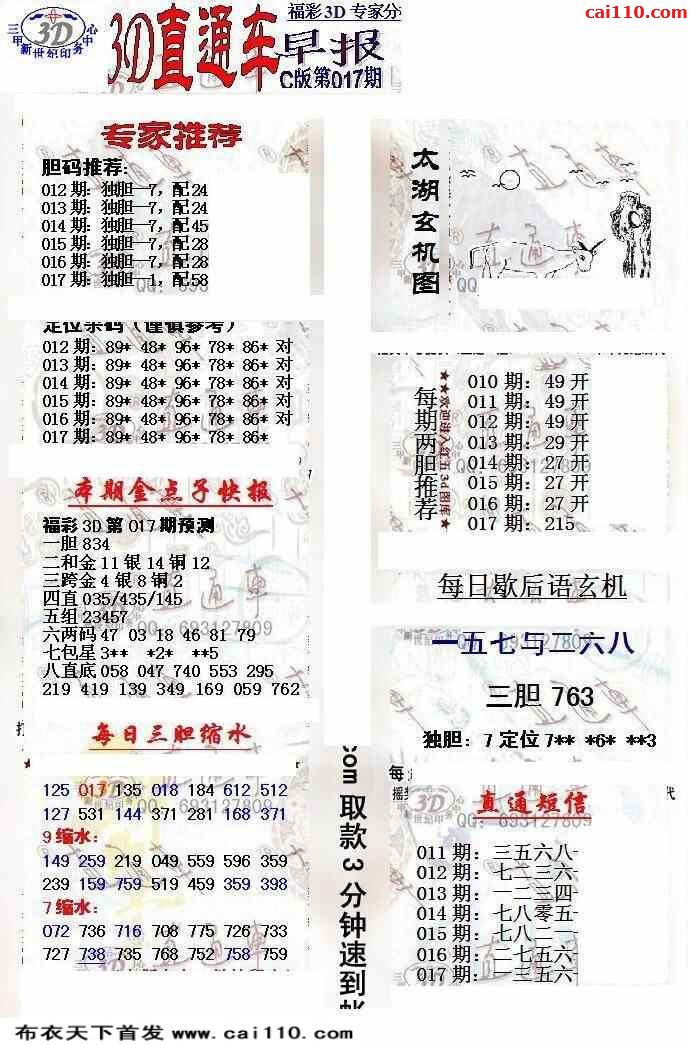 福彩3D专家分
cai110.com
三甲新世纪印务中心
3D
3D直通车早报
C版第017期
专家推荐
胆码推荐:
012期:独胆—7,配24
013期:独胆—7,配24
014期:独胆—7,配45
015期:独胆—7,配28
016期:独胆—7,配28
017期:独胆—1,配58
定位杀码(谨慎参考)
012期:89* 48* 96* 78* 86* 对
013期:89* 48* 96* 78* 86* 对
014期:89* 48* 96* 78* 86* 对
015期:89* 48* 96* 78* 86* 对
016期:89* 48* 96* 78* 86* 对
017期:89* 48* 96* 78* 86*
本期金点子快报
福彩3D第017期预测
一胆834
二和金11银14铜12
三跨金4银8铜2
四直035/435/145
五组23457
六两码47 03 18 46 81 79
七包星3** *2* **5
八直底058 047 740 553 295
219 419 139 349 169 059 762
每日三胆缩水
125 017 135 018 184 612 512
127 531 144 371 281 168 371
9缩水:
149 259 219 049 559 596 359
239 159 759 519 459 359 398
7缩水:
072 736 716 708 775 726 733
727 738 735 768 752 758 759
com取款3分钟速到帐
太湖玄机图
每期两胆推荐
★★欢迎进入红五3d图库★
010期:49开
011期:49开
012期:49开
013期:29开
014期:27开
015期:27开
016期:27开
017期:215
每日歇后语玄机
一五七与二六八
三胆763
独胆:7定位7** *6* **3
直通短信
QQ:693127809
011期:三五六八
012期:七二三六
013期:一二三四
014期:七八零五
015期:七八二一
016期:二七五六
017期:一三五六
布衣天下首发www.cai110.com